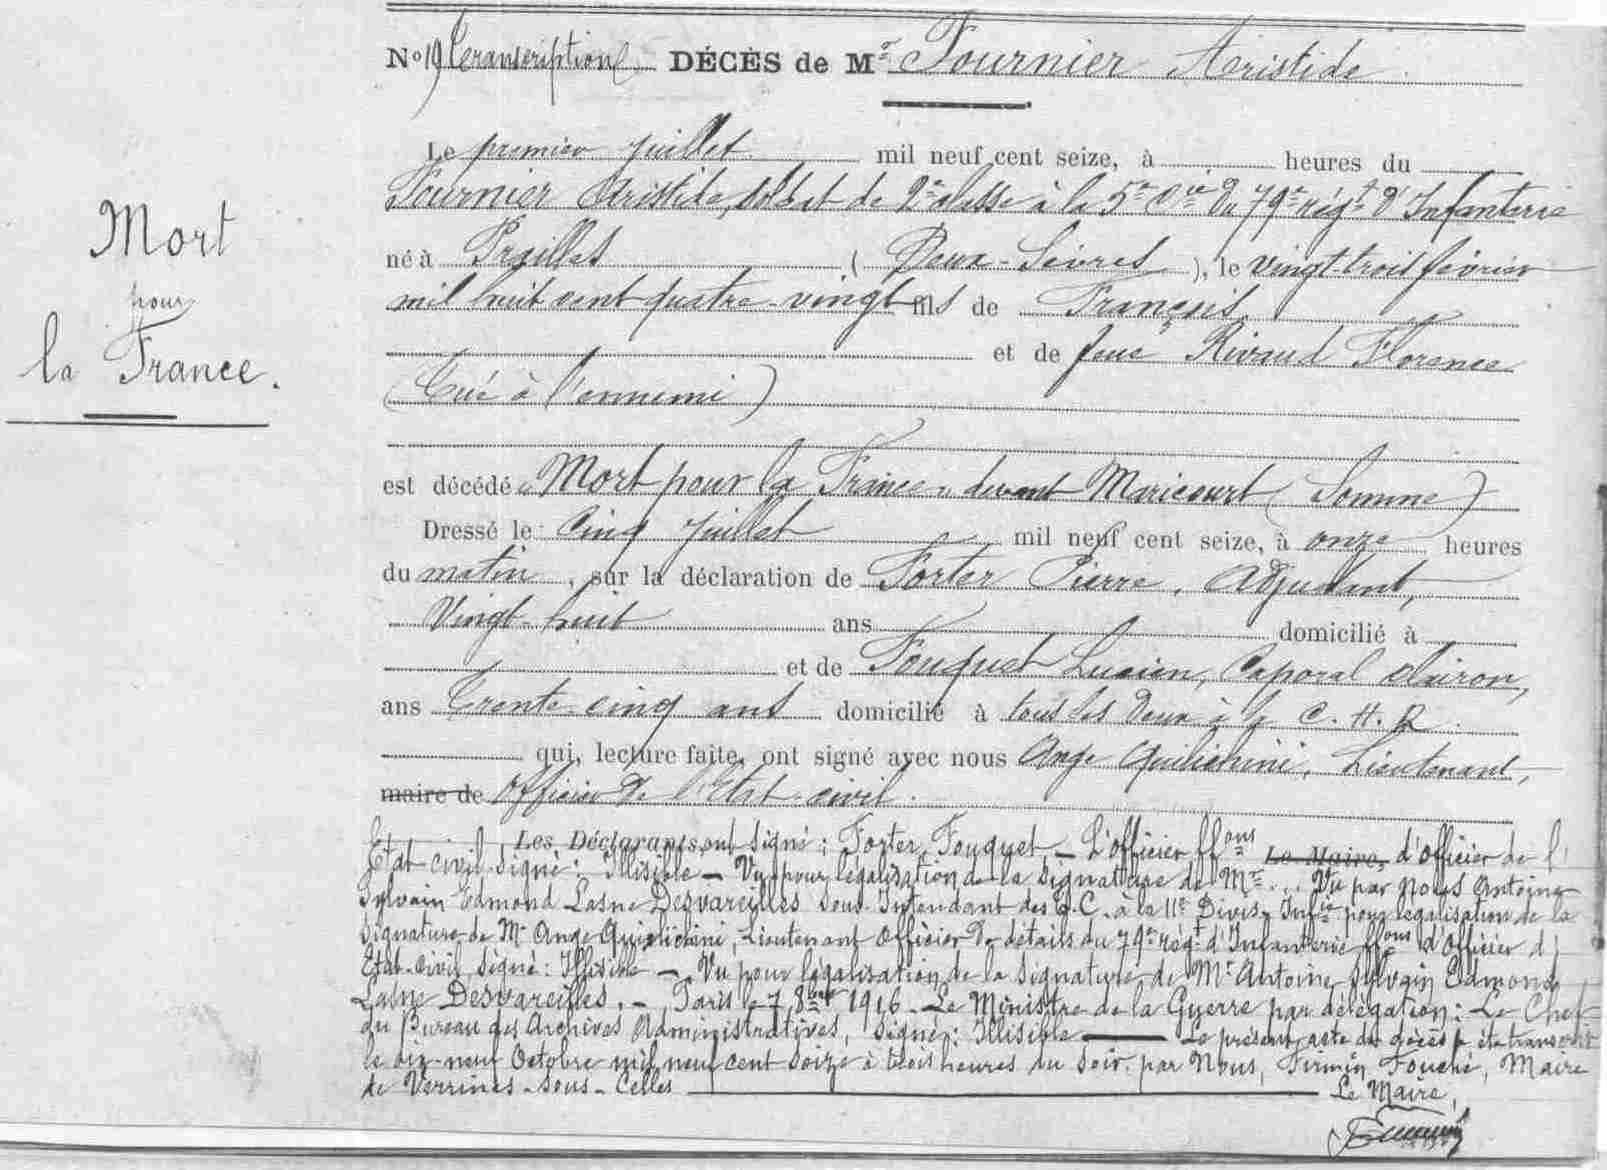 No 19 Transcription DÉCÈS de Mr Fournier Aristide
Le premier juillet mil neuf cent seize, à heures du
Fournier Aristide, soldat de 2e classe à la 5e Cie du 79e régt d'Infanterie
né à Prailles (Deux-Sèvres), le vingt-trois février
mil huit cent quatre-vingt fils de François
et de feue Rivaud Florence
(Tué à l'ennemi)
est décédé "Mort pour la France" devant Maricourt (Somme)
Dressé le cinq juillet mil neuf cent seize, à onze heures
du matin, sur la déclaration de Forter Pierre, Adjudant,
Vingt-huit ans domicilié à
et de Fouquet Lucien, Caporal clairon,
ans Trente-cinq ans domicilié à tous les deux à la C.H.R.
qui, lecture faite, ont signé avec nous Ange Quilichini, Lieutenant,
maire de Officier de l'Etat-civil.
Les Déclarants, ont signé : Forter, Fouquet — L'officier ffons Le Maire, d'officier de l'
Etat civil signé : Illisible — Vu pour légalisation de la signature de Mr ... Vu par nous Antoine
Sylvain Edmond Lasne Desvareilles Sous-Intendant des à la 11e Divis. Infie pour légalisation de la
signature de Mr Ange Quilichini, Lieutenant Officier de détails du 79e régt d'Infanterie ffons d'officier d'
Etat-civil signé : Illisible — Vu pour légalisation de la signature de Mr Antoine Sylvain Edmond
Lasne Desvareilles. — Paris le 7 8bre 1916 — Le Ministre de la Guerre par délégation : Le Chef
du Bureau des Archives Administratives, signé : Illisible — Le présent acte de décès a été transcrit
le dix-neuf Octobre mil neuf cent seize à trois heures du soir par Nous, Firmin Fouché, Maire
de Verrines-sous-Celles — Le Maire,
Mort
pour
la France.